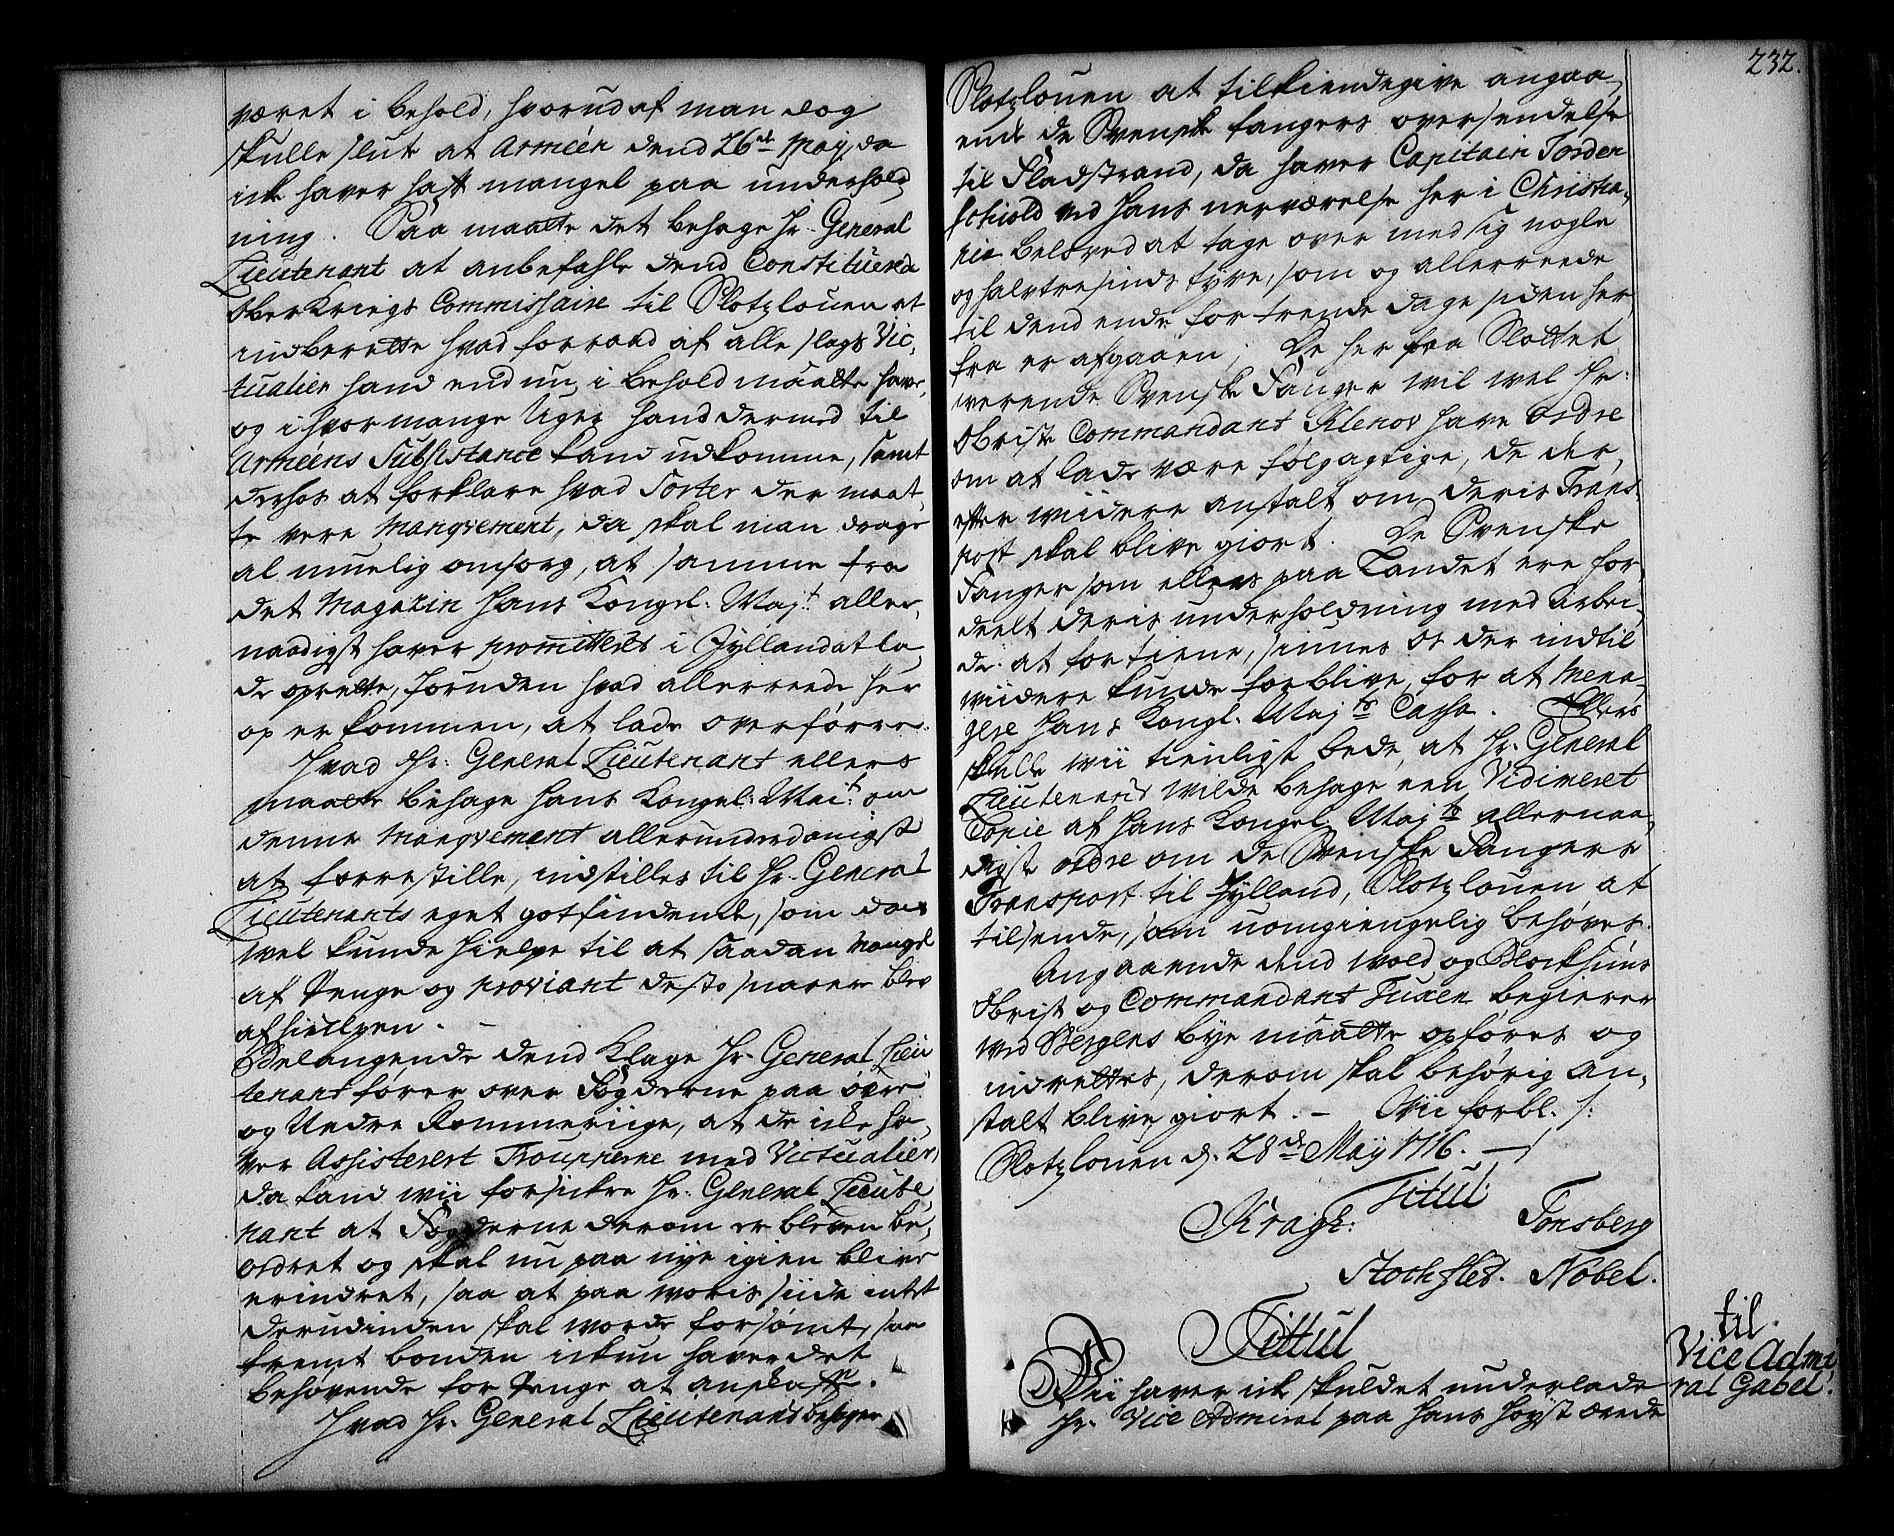 været i behold, hvorudaf man dog
skulle slute at Armeén dend 26de Maij, da
icke haver haft mangel paa underhold,
ning. Saa maatte det behage Hr. General
Lieutenant at anbefahle dend Constituerede
Ober Krigs Commissaire til Slotzlouen at
indberette hvad forraad af alle slags Vic,
tualier hand endnu i behold maatte have,
og i hvor mange Uger hand dermed til
Armeens Subsistance kand udkomme, samt
derhos at forklare hvad Sorter der maat,
te vere Manqvement, da skal man drage
al muelig omsorg, at samme fra
det Magazin Hans Kongel: Maj:t aller,
naadigst haver promitteret i Jylland at la,
de oprette, foruden hvad allerreede her
op er kommen, at lade overføres.
Hvad Hr: General Lieutenant ellers
maatte behage Hans Kongel: Mai:t om
denne Manqvement allerunderdanigst
at forrestille, indstilles til Hr. General
Lieutenants eget gotfindende, som dog
wel kunde hielpe til at saadan mangel
af Penge og proviant desto snarere blev
afhiulpen. -
Belangende dend Klage Hr. General Lieu
tenant fører over Fogderne paa øvre
og Nedre Rommeriige, at de icke ha,
ver Assisteret Troupperne med Victualier,
da kand wii forsickre Hr. General Lieute,
nant at Fogderne derom er bleven be,
ordret og skal nu paa nye igien blive
erindret, saa at paa woris siide intet
derudinden skal worde forsømt, saa
fremt bonden ickun haver det
behøvende for Penge at anskaffe.
Hvad Hr. General Lieutenand behager
232.
Slotzlouen at tilkiendegive angaa,
ende de Svenske fangers oversendelse
til Fladstrand, da haver Capitain Torden
schiold ved Hans nerværelse her i Christia,
nia belovet at tage over med sig nogle
og halvtresinds tyve, som og allerreede
til dend ende for trende dage siden her,
fra er afgaaen; De her paa Slottet
werende Svenske Fanger wil wel Hr:
Obriste Commandant Klenov have ordre
om at lade være følgagtige, de der,
efter wiidere anstalt om deris Trans,
port skal blive giort. De Svenske
Fanger som ellers paa Landet ere for,
deelt deris underholdning med Arbei,
de at fortiene, siunes os der indtil
wiidere kunde forblive, for at Mena,
gere Hans Kongl. Maj:ts Cassa. Ellers
skulle wii tienligst bede, at Hr. General
Lieutenand wilde behage een Vidimeret
Copie af Hans Kongel Maj:ts allernaa,
digste ordre om de Svenske Fangers
Transport til Jylland, Slotzlouen at
tilsende, som uomgiengelig behøves.
Angaaende dend wold og Blockhuus
Obrist og Commandant Tuxen begierer
wed Bergens bye maatte opføres og
indrettes, derom skal behørig An,
stalt blive giort. - Wii forbl. /:
Slotzlouen d. 28de Maÿ 1716. -
Titul
Kragh: Tonsberg
Stochfled. Nobel.
til
Vice Admi
ral Gabel.
Tittul
Wii haver icke skuldet underlade
Hr. Vice Admiral paa Hans høyst ærede